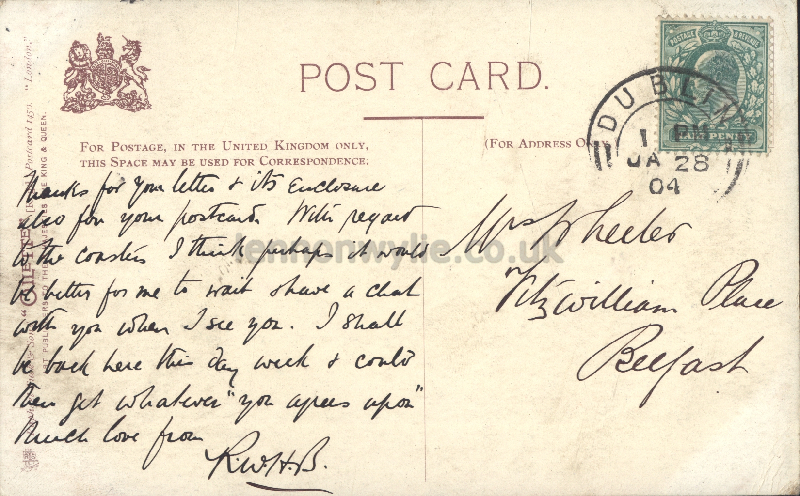 POST CARD.
FOR POSTAGE, IN THE UNITED KINGDOM ONLY,
THIS SPACE MAY BE USED FOR CORRESPONDENCE.
(FOR ADDRESS
POSTAGE & REVENUE
HALF PENNY
DUBLIN
JA 28
04
Thanks for your letter & its enclosure
also for your postcard. With regard
to the coasters I think perhaps it would
be better for me to wait & have a chat
with you when I see you. I shall
be back here this day week & could
then get whatever "you agree upon"
Much love from
R.W.H.B.
Mrs Wheeler
Fitzwilliam Place
Belfast
Postcard 1451. "London."
TO THEIR MAJESTIES THE KING & QUEEN.
lennonwylie.co.uk